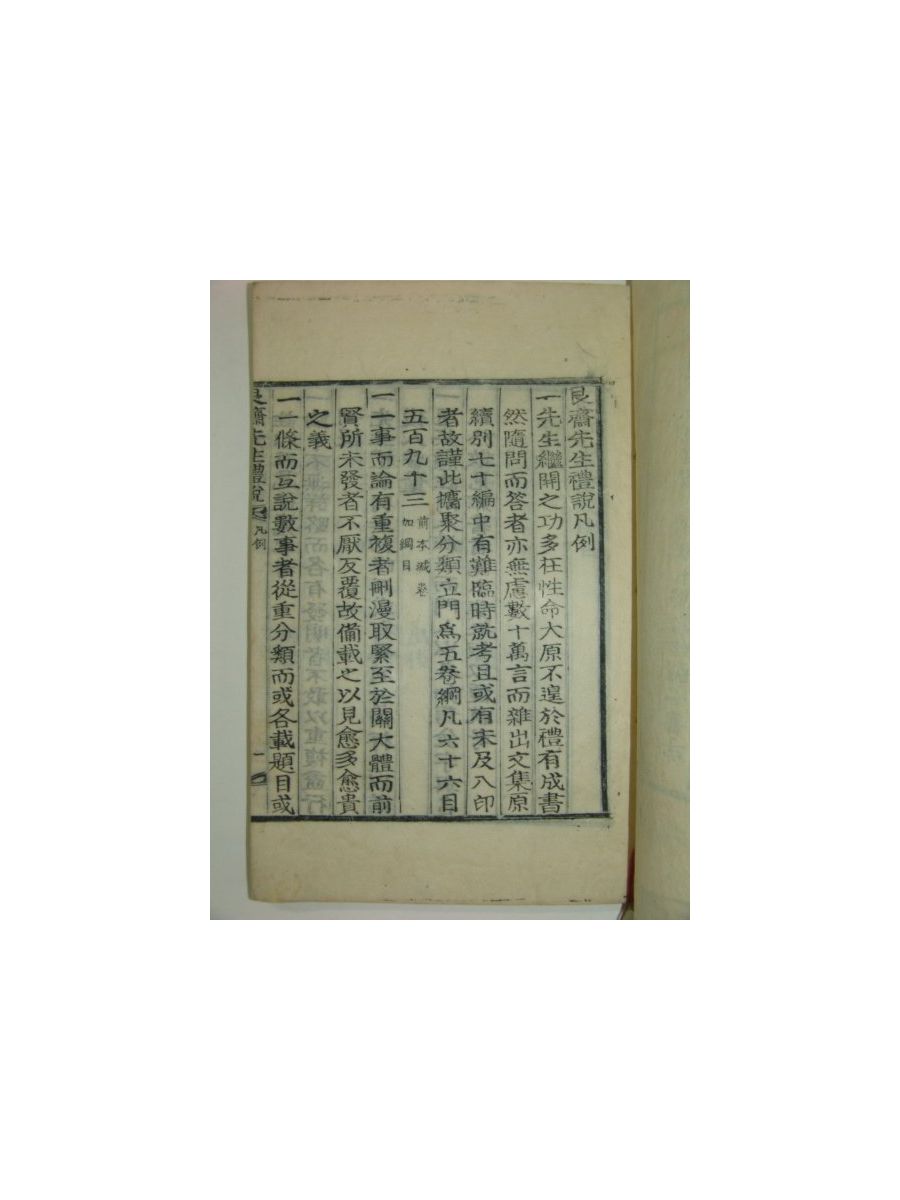 艮齋先生禮說凡例
一先生繼開之功多在性命大原不遑於禮有成書
然隨問而答者亦無慮數十萬言而雜出文集原
續別七十編中有難臨時就考且或有未及入印
者故謹此攟聚分類立門爲五卷綱凡六十六目
五百九十三前本減卷加綱目
一一事而論有重複者刪漫取緊至於關大體而前
賢所未發者不厭反覆故備載之以見愈多愈貴
之義
一一條而互說數事者從重分類而或各載題目或
艮齋先生禮說 凡例 一